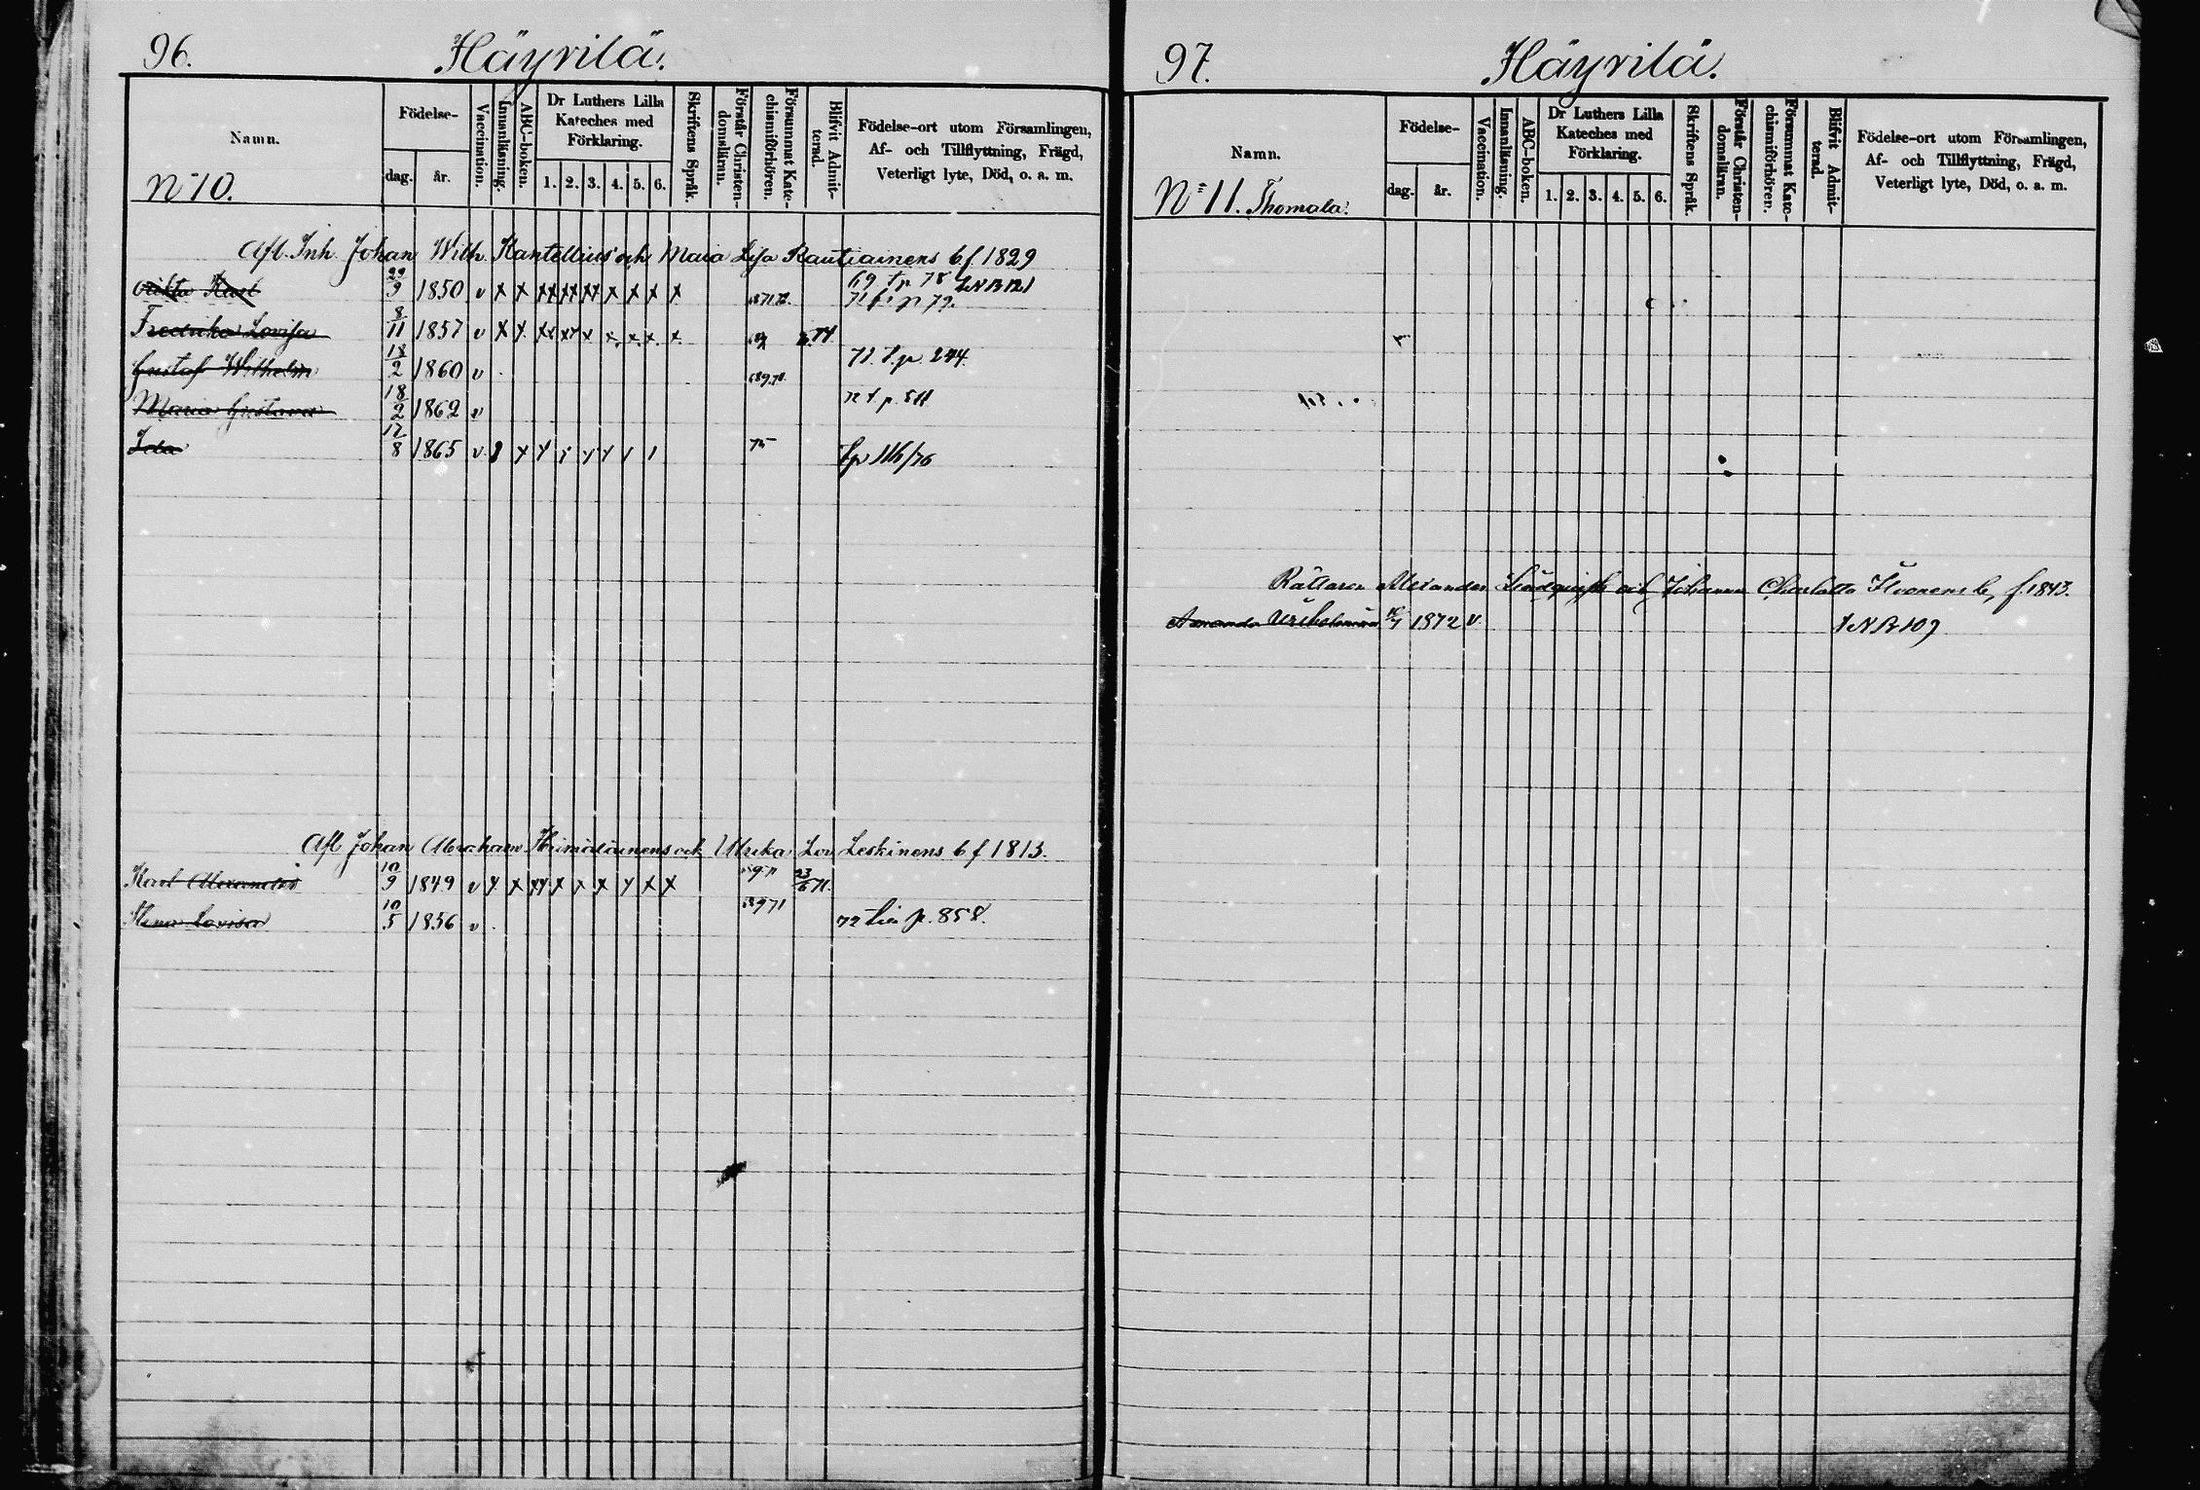 96.
Häyrilä.
Namn.
Födelse-
dag.
år.
Vaccination.
Innanläsning.
ABC-boken.
Dr Luthers Lilla
Kateches med
Förklaring.
1. 2. 3. 4. 5. 6.
Skriftens Språk.
Förstår Christen-
domsläran.
Försummat Kate-
chismiförhören.
Blifvit Admit-
terad.
Födelse-ort utom Församlingen,
Af- och Tillflyttning, Frägd,
Veterligt lyte, Död, o. a. m.
No 10.
Afl. Inh. Johan Wilh. Kantellius och Maria Lisa Rautiainens b. f 1829
Karl 29/9 1850 v x x xx xx xx x x x x 69 t p 78
71 p 79.
Fredrika Lovisa 8/11 1857 v x x xx xx x x x x x
Gustaf Wilhelm 18/2 1860 v 71. t. p 244.
Maria Gustava 18/2 1862 v 72 t. p. 511
Ida 12/8 1865 v 75 tp 116/76
Afl Johan Abraham och Ulrika Lov Leskinens b f 1813.
Karl Alexander 10/9 1849 v x x xx x x x x x x 23/6 71.
Lovisa 10/5 1856 v 72 p. 858.
97.
Häyrilä.
Namn.
Födelse-
dag.
år.
Vaccination.
Innanläsning.
ABC-boken.
Dr Luthers Lilla
Kateches med
Förklaring.
1. 2. 3. 4. 5. 6.
Skriftens Språk.
Förstår Christen-
domsläran.
Försummat Kate-
chismiförhören.
Blifvit Admit-
terad.
Födelse-ort utom Församlingen,
Af- och Tillflyttning, Frägd,
Veterligt lyte, Död, o. a. m.
No 11. Thomala.
Rättaren Alexander Lindqvists och Johanna Charlotta Ilvonens b, f. 1843.
Amanda 1872 v.